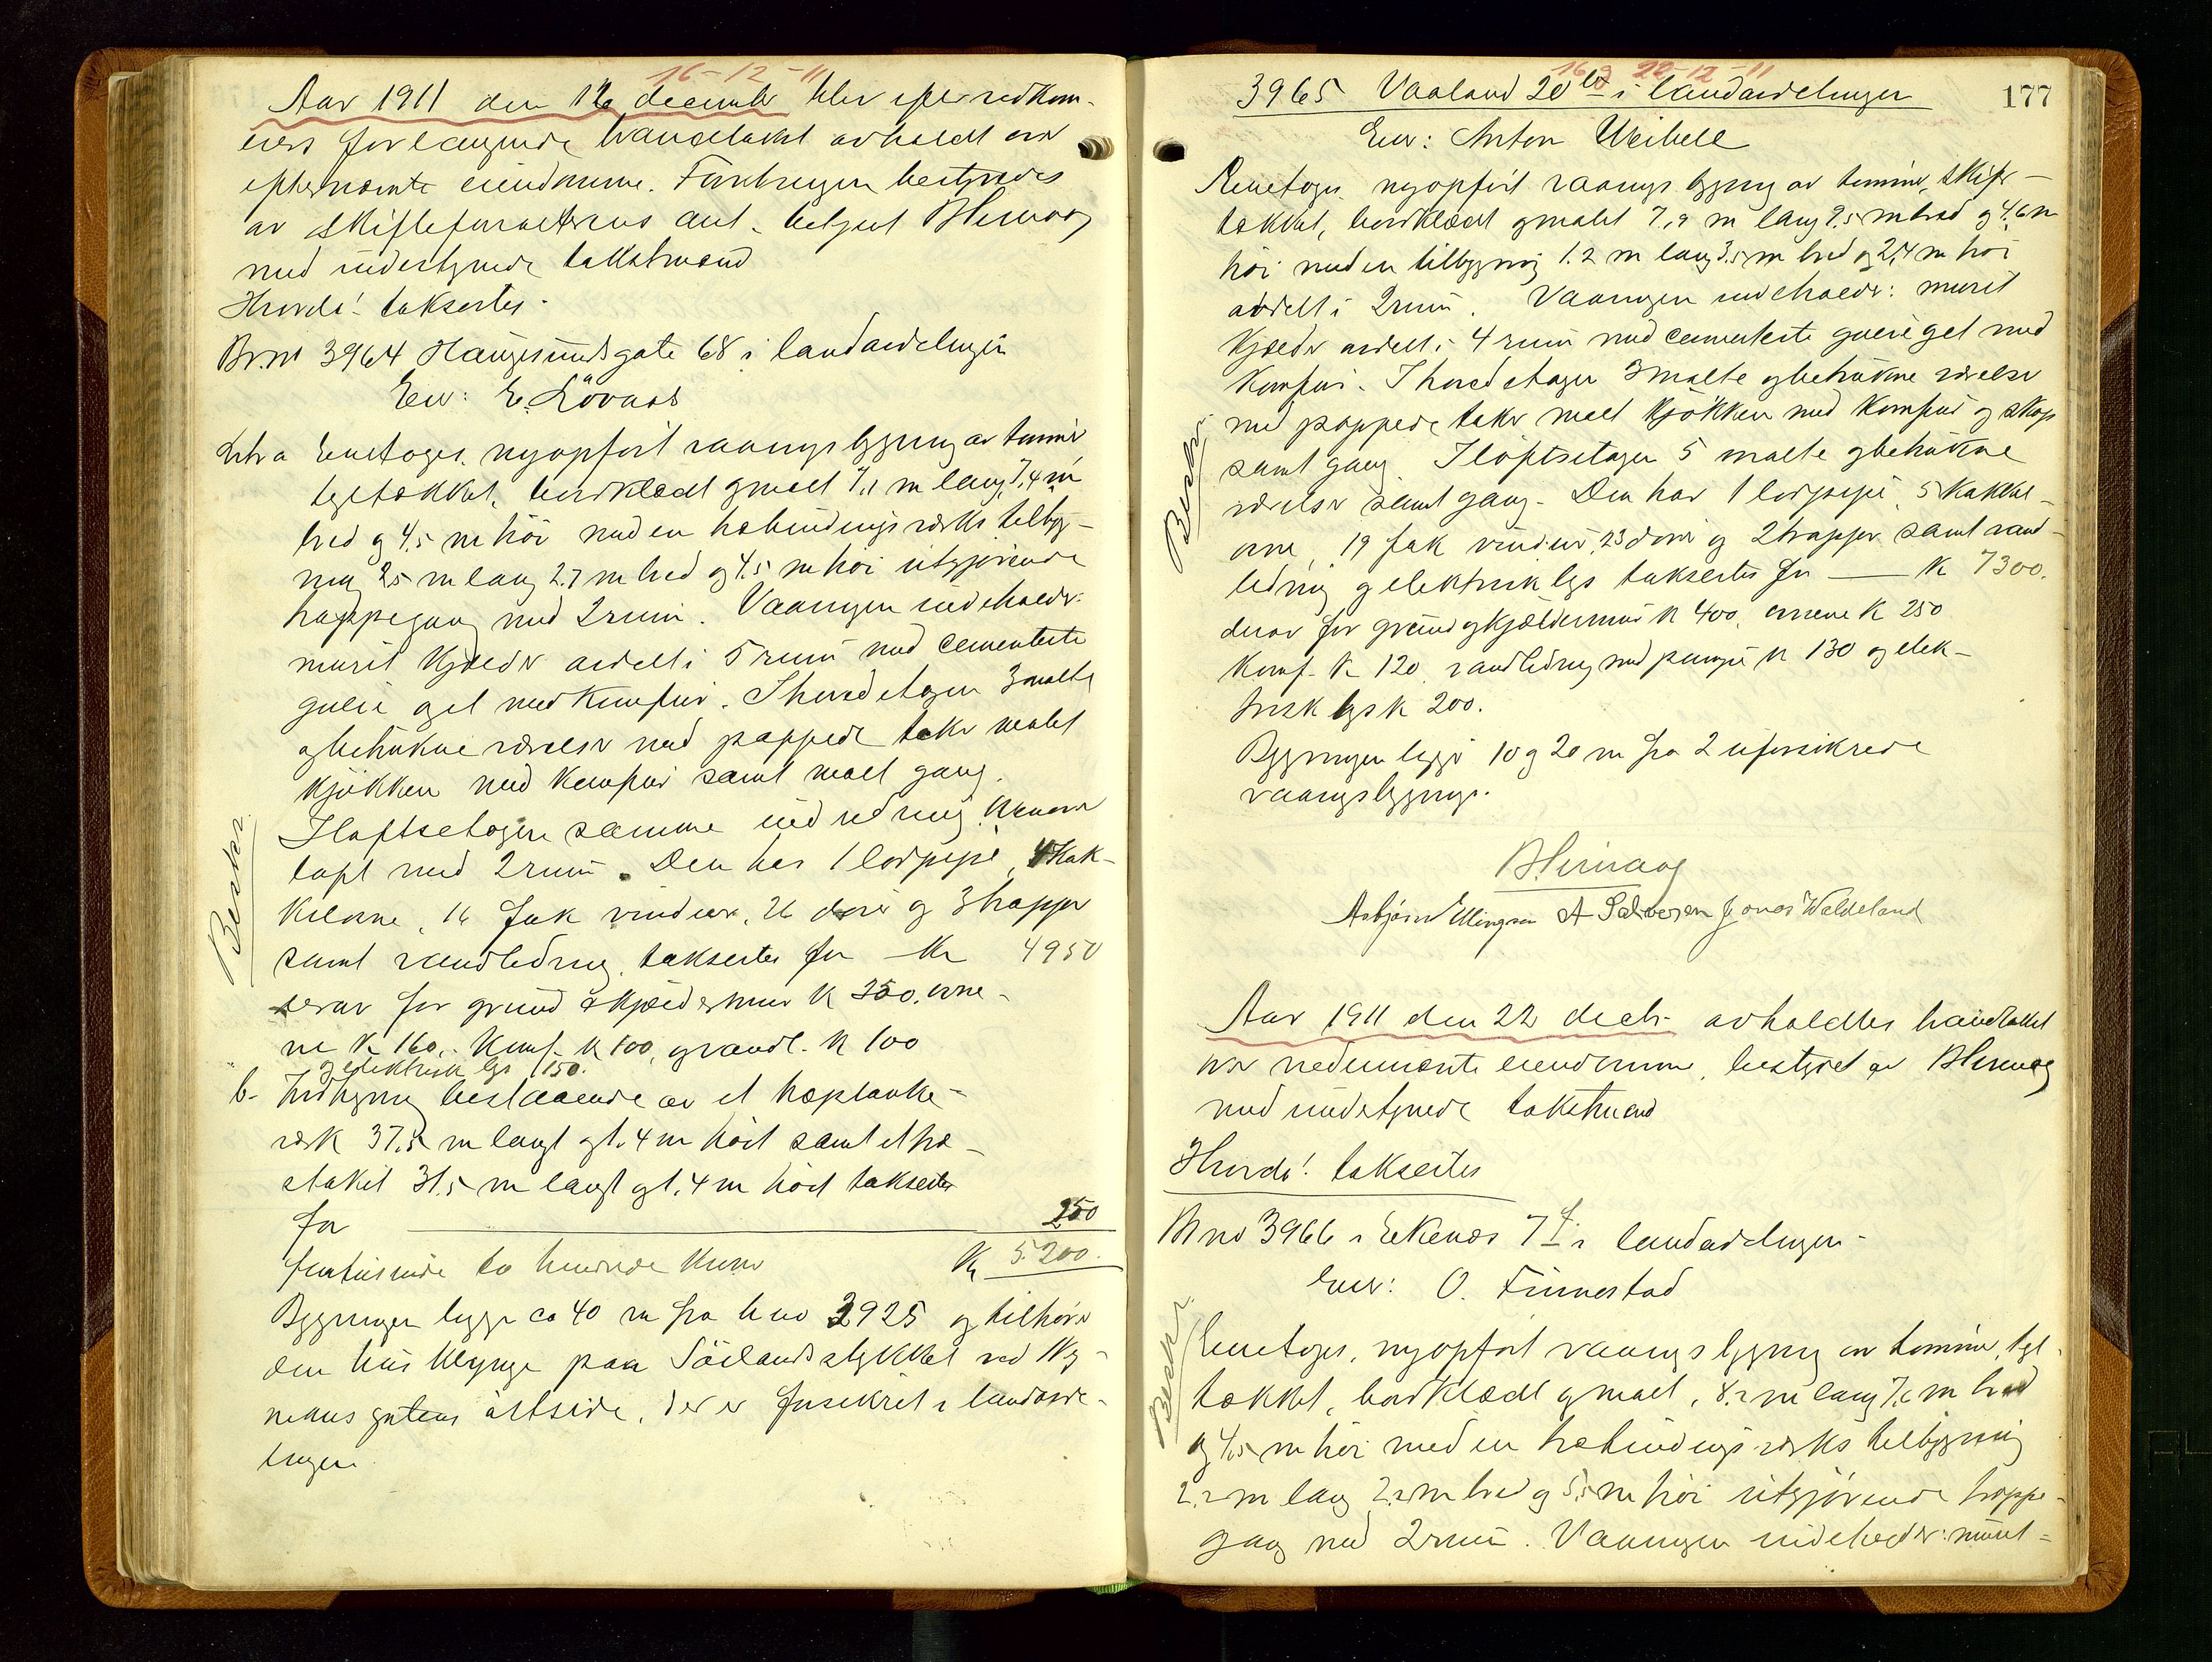 16-12-11
Aar 1911 den 16 december blev efter vedkom-
eiers forlangende brandtakst avholdt over
efternævnte eiendomme. Forretningen bestyredes
av skifteforvalterens aut. betjent BHermog
med undertegnede takstmænd
Hvorda! takseertes.
Br.no 3964 Haugesundsgate 68 i landavdelingen
Eier: E. Lövaas
Litr a Enetages. nyopfört vaaningsbygning av tømmer
teglækket, bordklædt og malt 7,1 m lang, 7,4 m
bred og 4,5 m höi med en halvbindingsverks tilbyg-
ning 2,5 m lang 2.7 m bred og 4.5 m höi utgjørende
trappegang med 2 rum. Vaaningen indeholder:
muret kjælder avdelt i 5 rum med cementerte
gulve og et med komfur. I hovedetagen 3 malte
og betrukne værelser med pappede taker malet
kjökken med komfur samt malt gang.
I loftsetagen samme indredning. Herover
loft med 2 rum. Den har 1 lodpipe, 4 kak-
kelovne, 16 fak vinduer, 26 dører og 3 trapper
samt vandledning, takseertes for Kr 4950
derav for grund & kjældermur K 350. ovne-
ne K 160, Komf. K 100, og vandl. K 100
og elektrisk lys 150.
b. Indhegning bestaaende av et træplanke-
værk 37.5 m langt og 1.4 m höit samt et træ-
stakit 31,5 m langt og 1.4 m höit takseertes
for 250
femtusinde to hundrede kroner Kr 5200.
Bygningen ligger ca 40 m fra br no 3925 og tilhører
den husklynge paa Söilandsstykket ved Ny-
mansgatens östside, der er forsikret i landavde-
lingen
Beskr.
16 & 22-12-11
177
3965 Vaaland 20 bt i landavdelingen
Eier: Anton Weibell
Enetages. nyopfört vaaningsbygning av tømmer, skifer-
tækket, bordklædt og malet 7,9 m lang 9.5 m bred og 4,6 m
höi med en tilbygning 1.2 m lang 3.5 m bred og 2,4 m höi
avdelt i 2 rum. Vaaningen indeholder: muret
kjælder avdelt i 4 rum med cementerte gulve og et med
komfur. I hovedetagen 3 malte og betrukne værelser
med pappede taker malt kjökken med komfur og skap
samt gang. I löftsetagen 5 malte og betrukne
værelser samt gang. Den har 1 lodpipe, 5 kakkel-
ovne, 19 fak vinduer, 23 dører og 2 trapper samt vand-
ledning og elektrisk lys takseertes for K 7300.
derav for grund og kjældermur K 400, ovnene K 250
Komf. K 120, vandledning med pumpe K 130 og elek-
trisk lys K 200.
Bygningen ligger 10 og 20 m fra 2 uforsikrede
vaaningsbygninger.
Beskr.
BHermog
Asbjörn Ellingsen A Salvesen Jonas Waldeland
Aar 1911 den 22 decbr avholdtes brandtakst
over nedennævnte eiendomme, bestyret av BHermog
med undertegnede takstmænd
Hvorda! takseertes
Br no 3966 i Ekenæs 7 f i landavdelingen
Eier: O. Finnestad
Enetages, nyopfört vaaningsbygning av tømmer, tegl-
tækket, bordklædt og malt, 8.2 m lang 7,6 m bred
og 4,5 m höi med en halvbindingsverks tilbygning
2.2 m lang 2.2 m bred og 5,5 m höi utgjørende trappe-
gang med 2 rum. Vaaningen indeholder: muret-
Beskr.